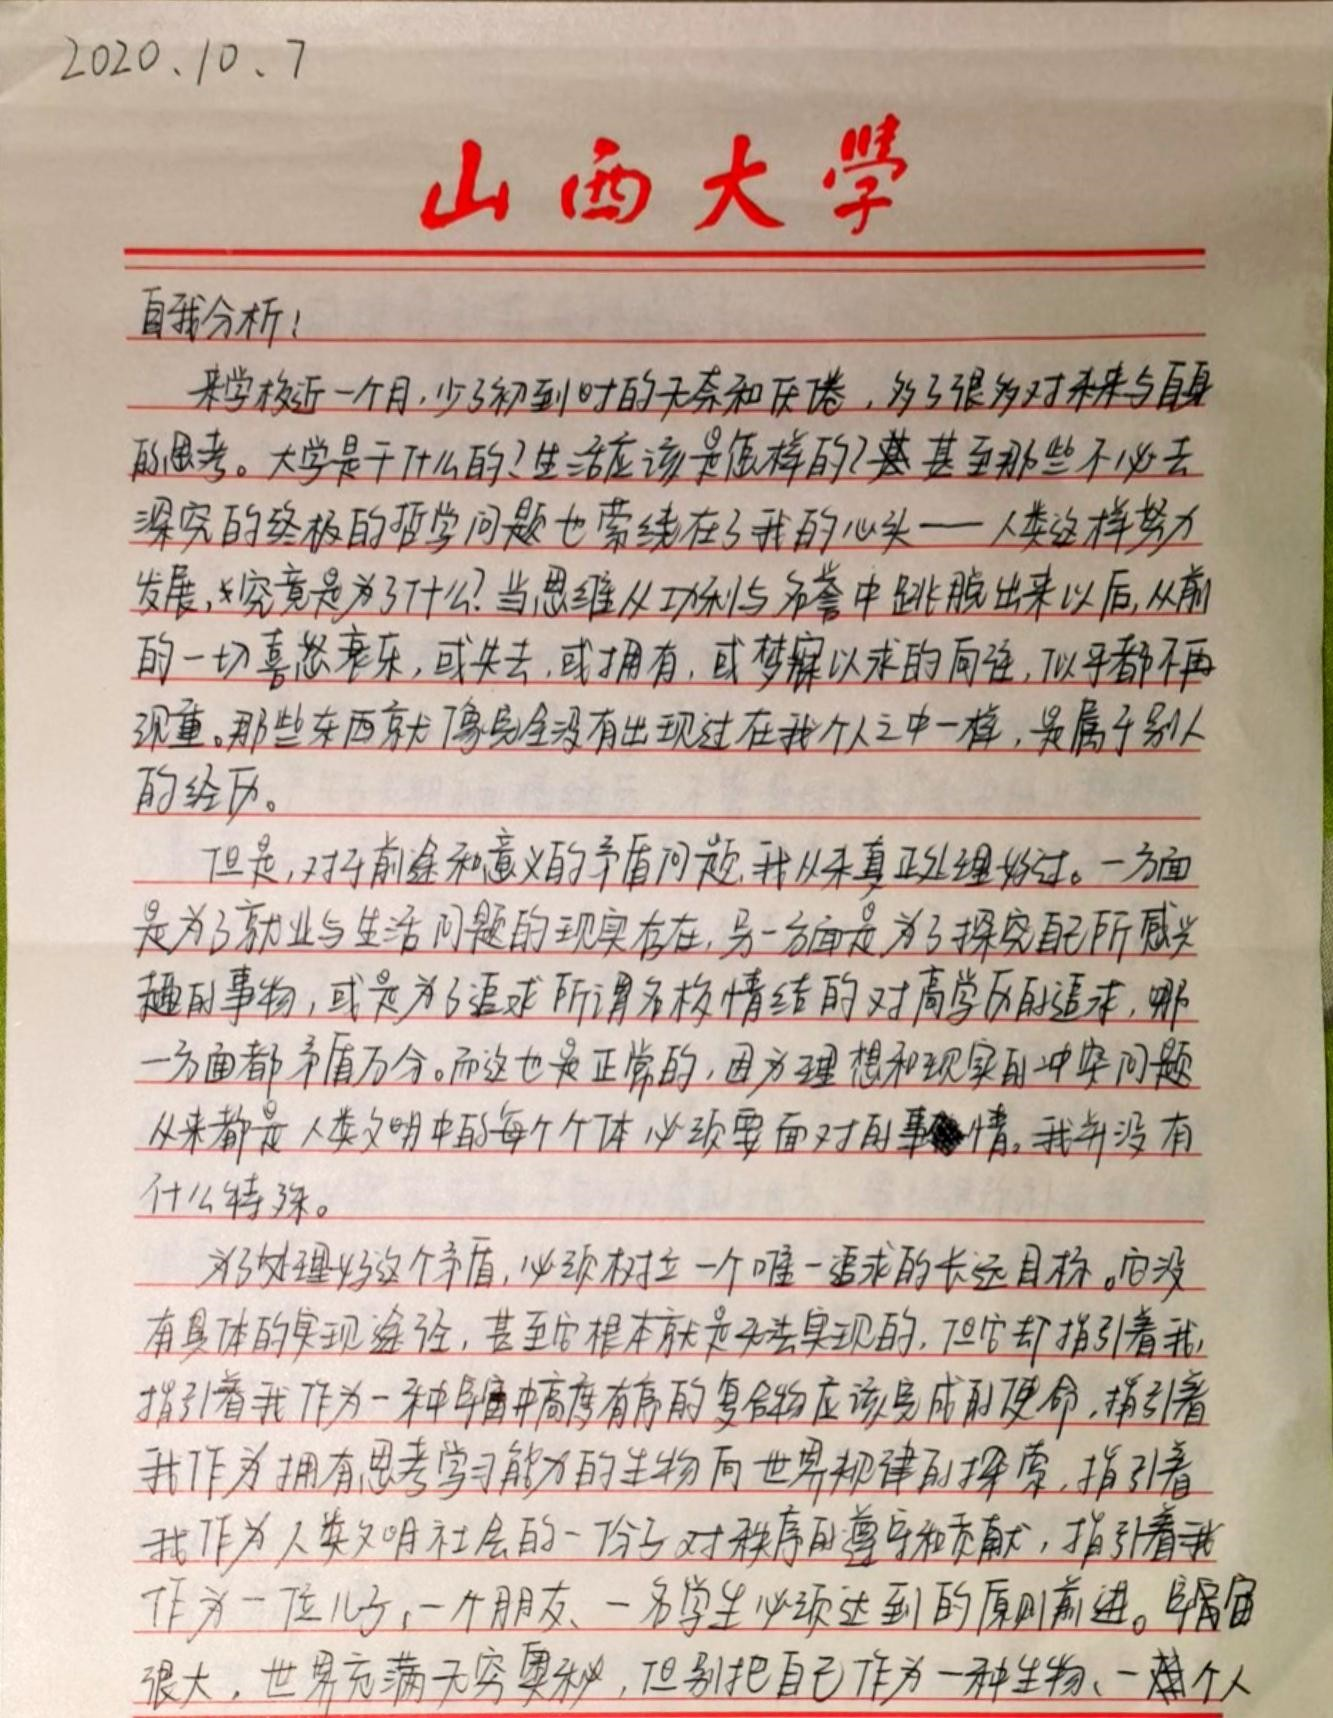 2020.10.7
山西大學
自我分析：
来学校近一个月，少了初到时的无奈和厌倦，多了很多对未来与自身
的思考。大学是干什么的？生活应该是怎样的？甚至那些不必去
深究的终极的哲学问题也萦绕在了我的心头——人类这样努力
发展，究竟是为了什么？当思维从功利与名誉中跳脱出来以后，从前
的一切喜怒哀乐，或失去，或拥有，或梦寐以求的向往，似乎都不再
沉重。那些东西就像完全没有出现过在我个人之中一样，是属于别人
的经历。
但是，对于前途和意义的矛盾问题，我从未真正处理好过。一方面
是为了就业与生活问题的现实存在，另一方面是为了探究自己所感兴
趣的事物，或是为了追求所谓名校情结的对高学历的追求，哪
一方面都矛盾万分。而这也是正常的，因为理想和现实的冲突问题
从来都是人类文明中的每个个体必须要面对的事情。我并没有
什么特殊。
为了处理好这个矛盾，必须树立一个唯一追求的长远目标。它没
有具体的实现途径，甚至它根本就是无法实现的，但它却指引着我，
指引着我作为一种中高度有序的复合物应该完成的使命，指引着
我作为拥有思考学习能力的生物向世界规律的探索，指引着
我作为人类文明社会的一份子对秩序的遵守和贡献，指引着我
作为一位儿子、一个朋友、一名学生必须达到的原则前进。
很大，世界充满无穷奥秘，但别把自己作为一种生物、一个人